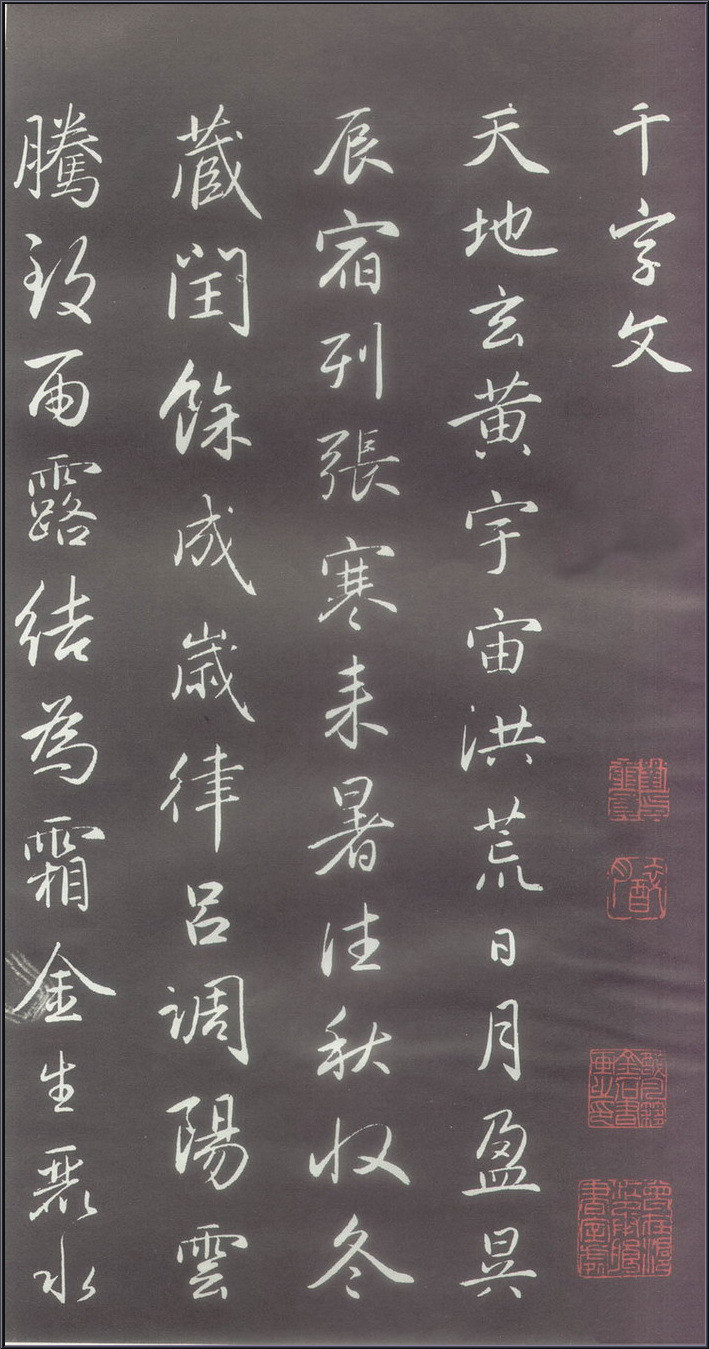 千字文
天地玄黃宇宙洪荒日月盈昃
辰宿列張寒来暑往秋收冬
蔵閏餘成歳律呂調陽雲
騰致雨露結為霜金生麗水